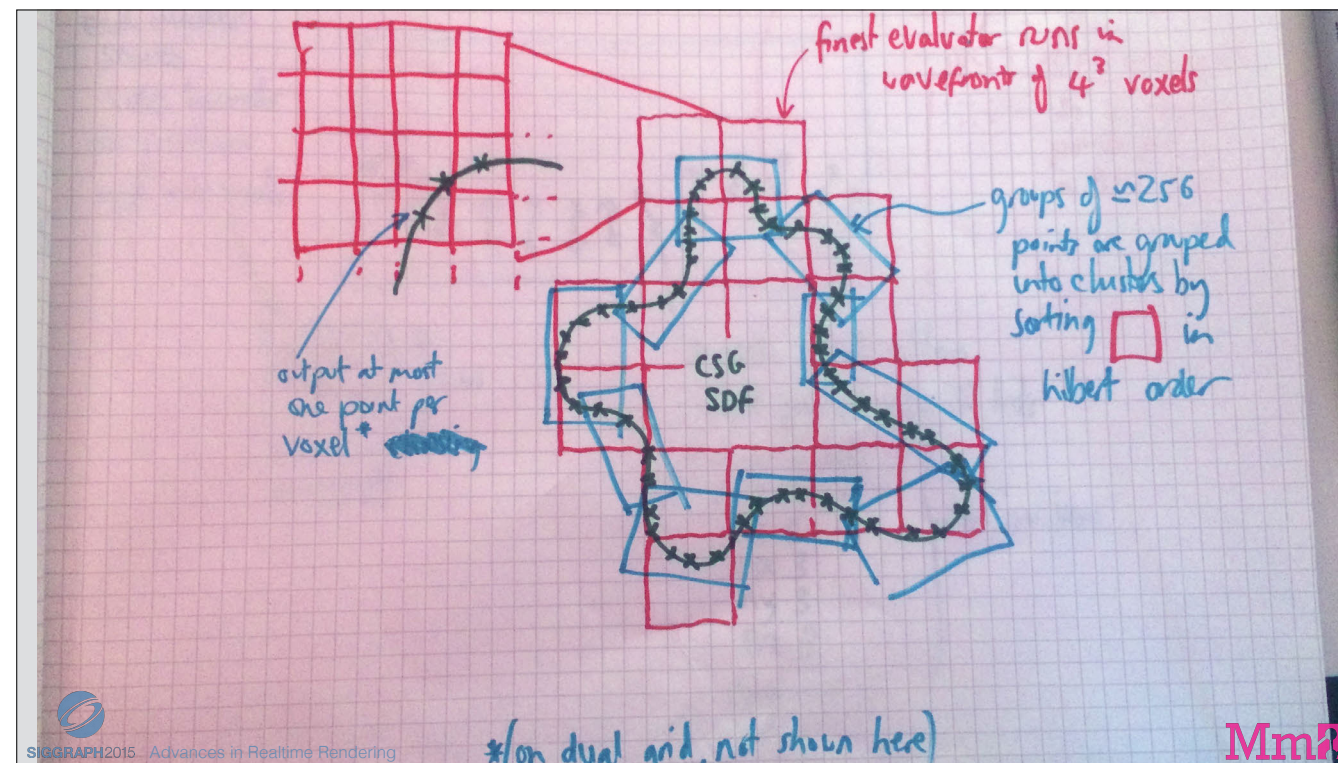 finest evaluator runs in
wavefronts of 4³ voxels
groups of ≈256
points are grouped
into clusters by
sorting in
hilbert order
output at most
one point per
voxel*
CSG
SDF
*(on dual grid, not shown here)
SIGGRAPH2015 Advances in Realtime Rendering
Mm